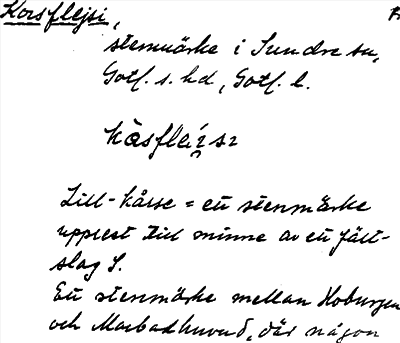 Korsflejsi,
stenmärke i Sundre sn,
Gotl. s. hd, Gotl. l.
Lill-kårse = ett stenmärke
upprest till minne av ett fält-
slag S.
Ett stenmärke mellan Hoburgen
och Marbodhuvud, där någon